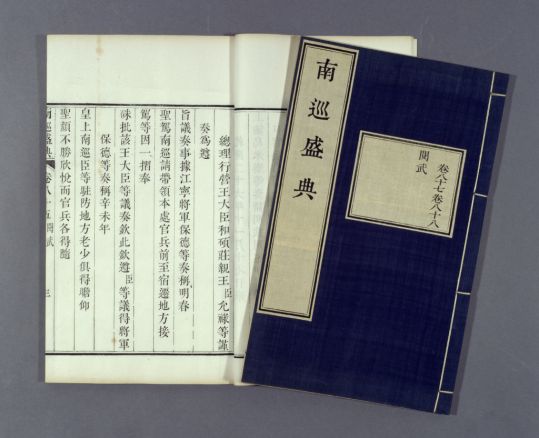 南巡盛典
卷八十七卷八十八
閱武
總理行營王大臣和碩莊親王臣允祿等謹
奏爲遵
旨議奏事據江寧將軍保德等奏稱明春
聖駕南巡請帶領本處官兵前至宿遷地方接
駕等因一摺奉
硃批該王大臣等議奏欽此欽遵臣等議得將軍
保德等奏稱辛未年
皇上南巡臣等駐防地方老少俱得瞻仰
聖顏不勝欣悅而官兵各得隨
南巡盛典 卷八十五 閱武 三